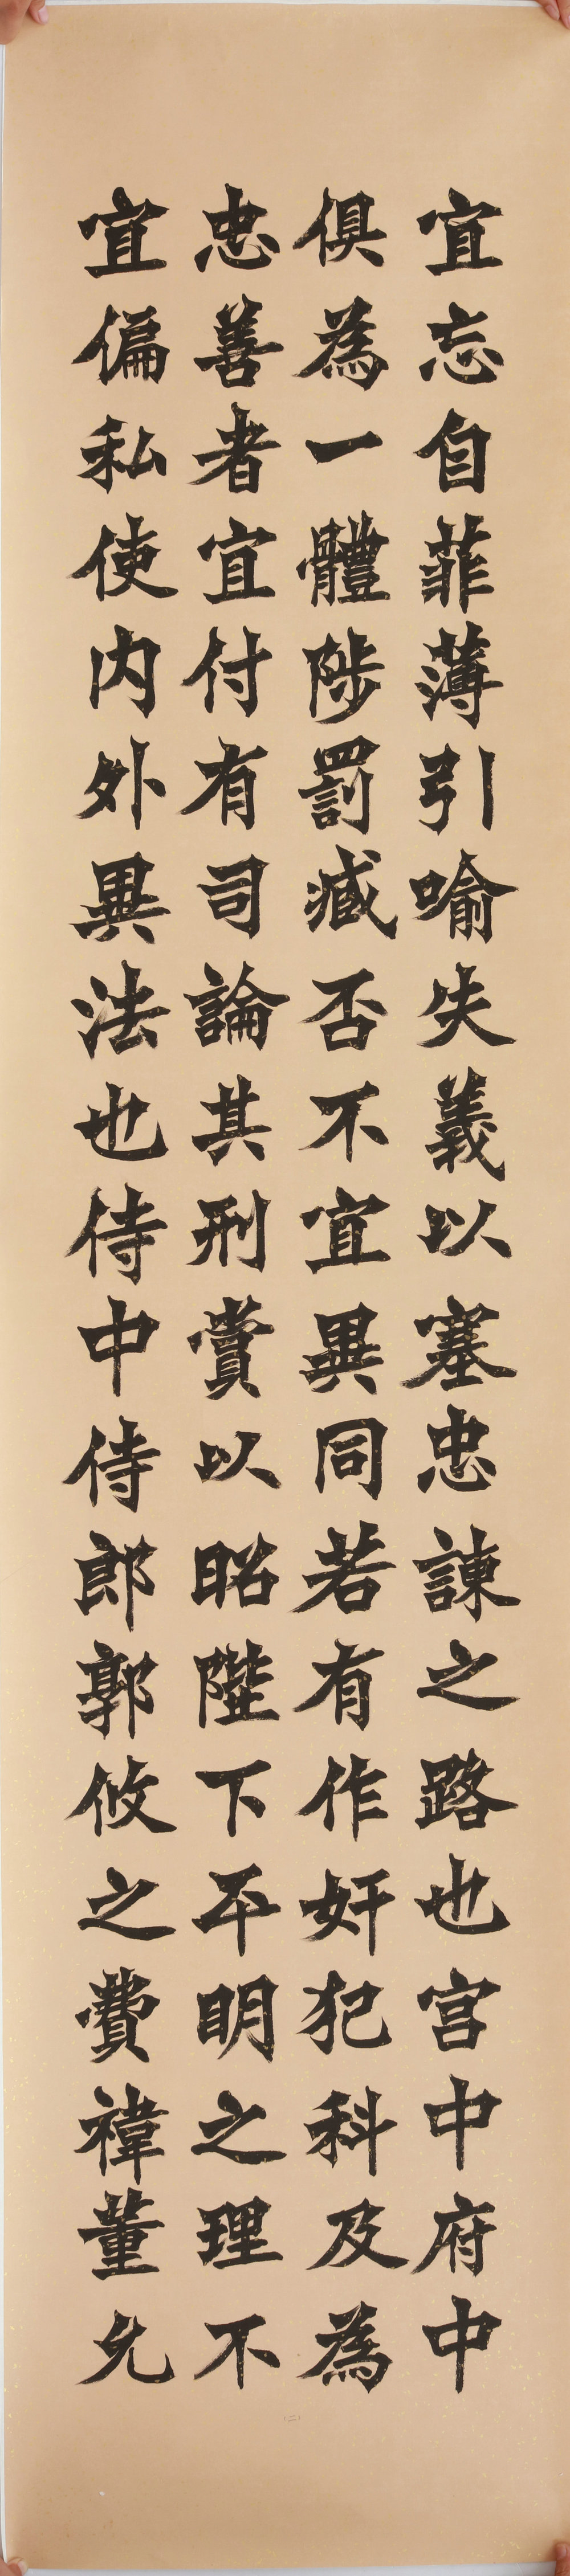 宜忘自菲薄引喻失義以塞忠諫之路也宫中府中
俱為一體陟罰臧否不宜異同若有作奸犯科及為
忠善者宜付有司論其刑賞以昭陛下平明之理不
宜偏私使内外異法也侍中侍郎郭攸之費禕董允
(二)